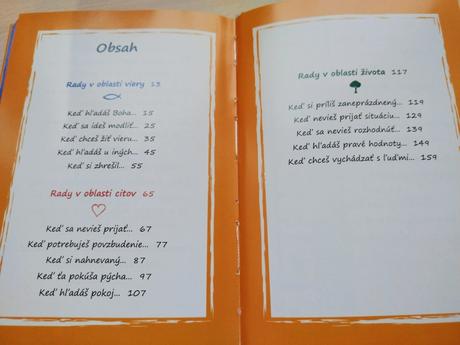 Obsah
Rady v oblasti viery 13
Keď hľadáš Boha... 15
Keď sa ideš modliť... 25
Keď chceš žiť vieru... 35
Keď hľadáš u iných... 45
Keď si zhrešil... 55
Rady v oblasti citov 65
Keď sa nevieš prijať... 67
Keď potrebuješ povzbudenie... 77
Keď si nahnevaný... 87
Keď ťa pokúša pýcha... 97
Keď hľadáš pokoj... 107
Rady v oblasti života 117
Keď si príliš zaneprázdnený... 119
Keď nevieš prijať situáciu... 129
Keď sa nevieš rozhodnúť... 139
Keď hľadáš pravé hodnoty... 149
Keď chceš vychádzať s ľuďmi... 159